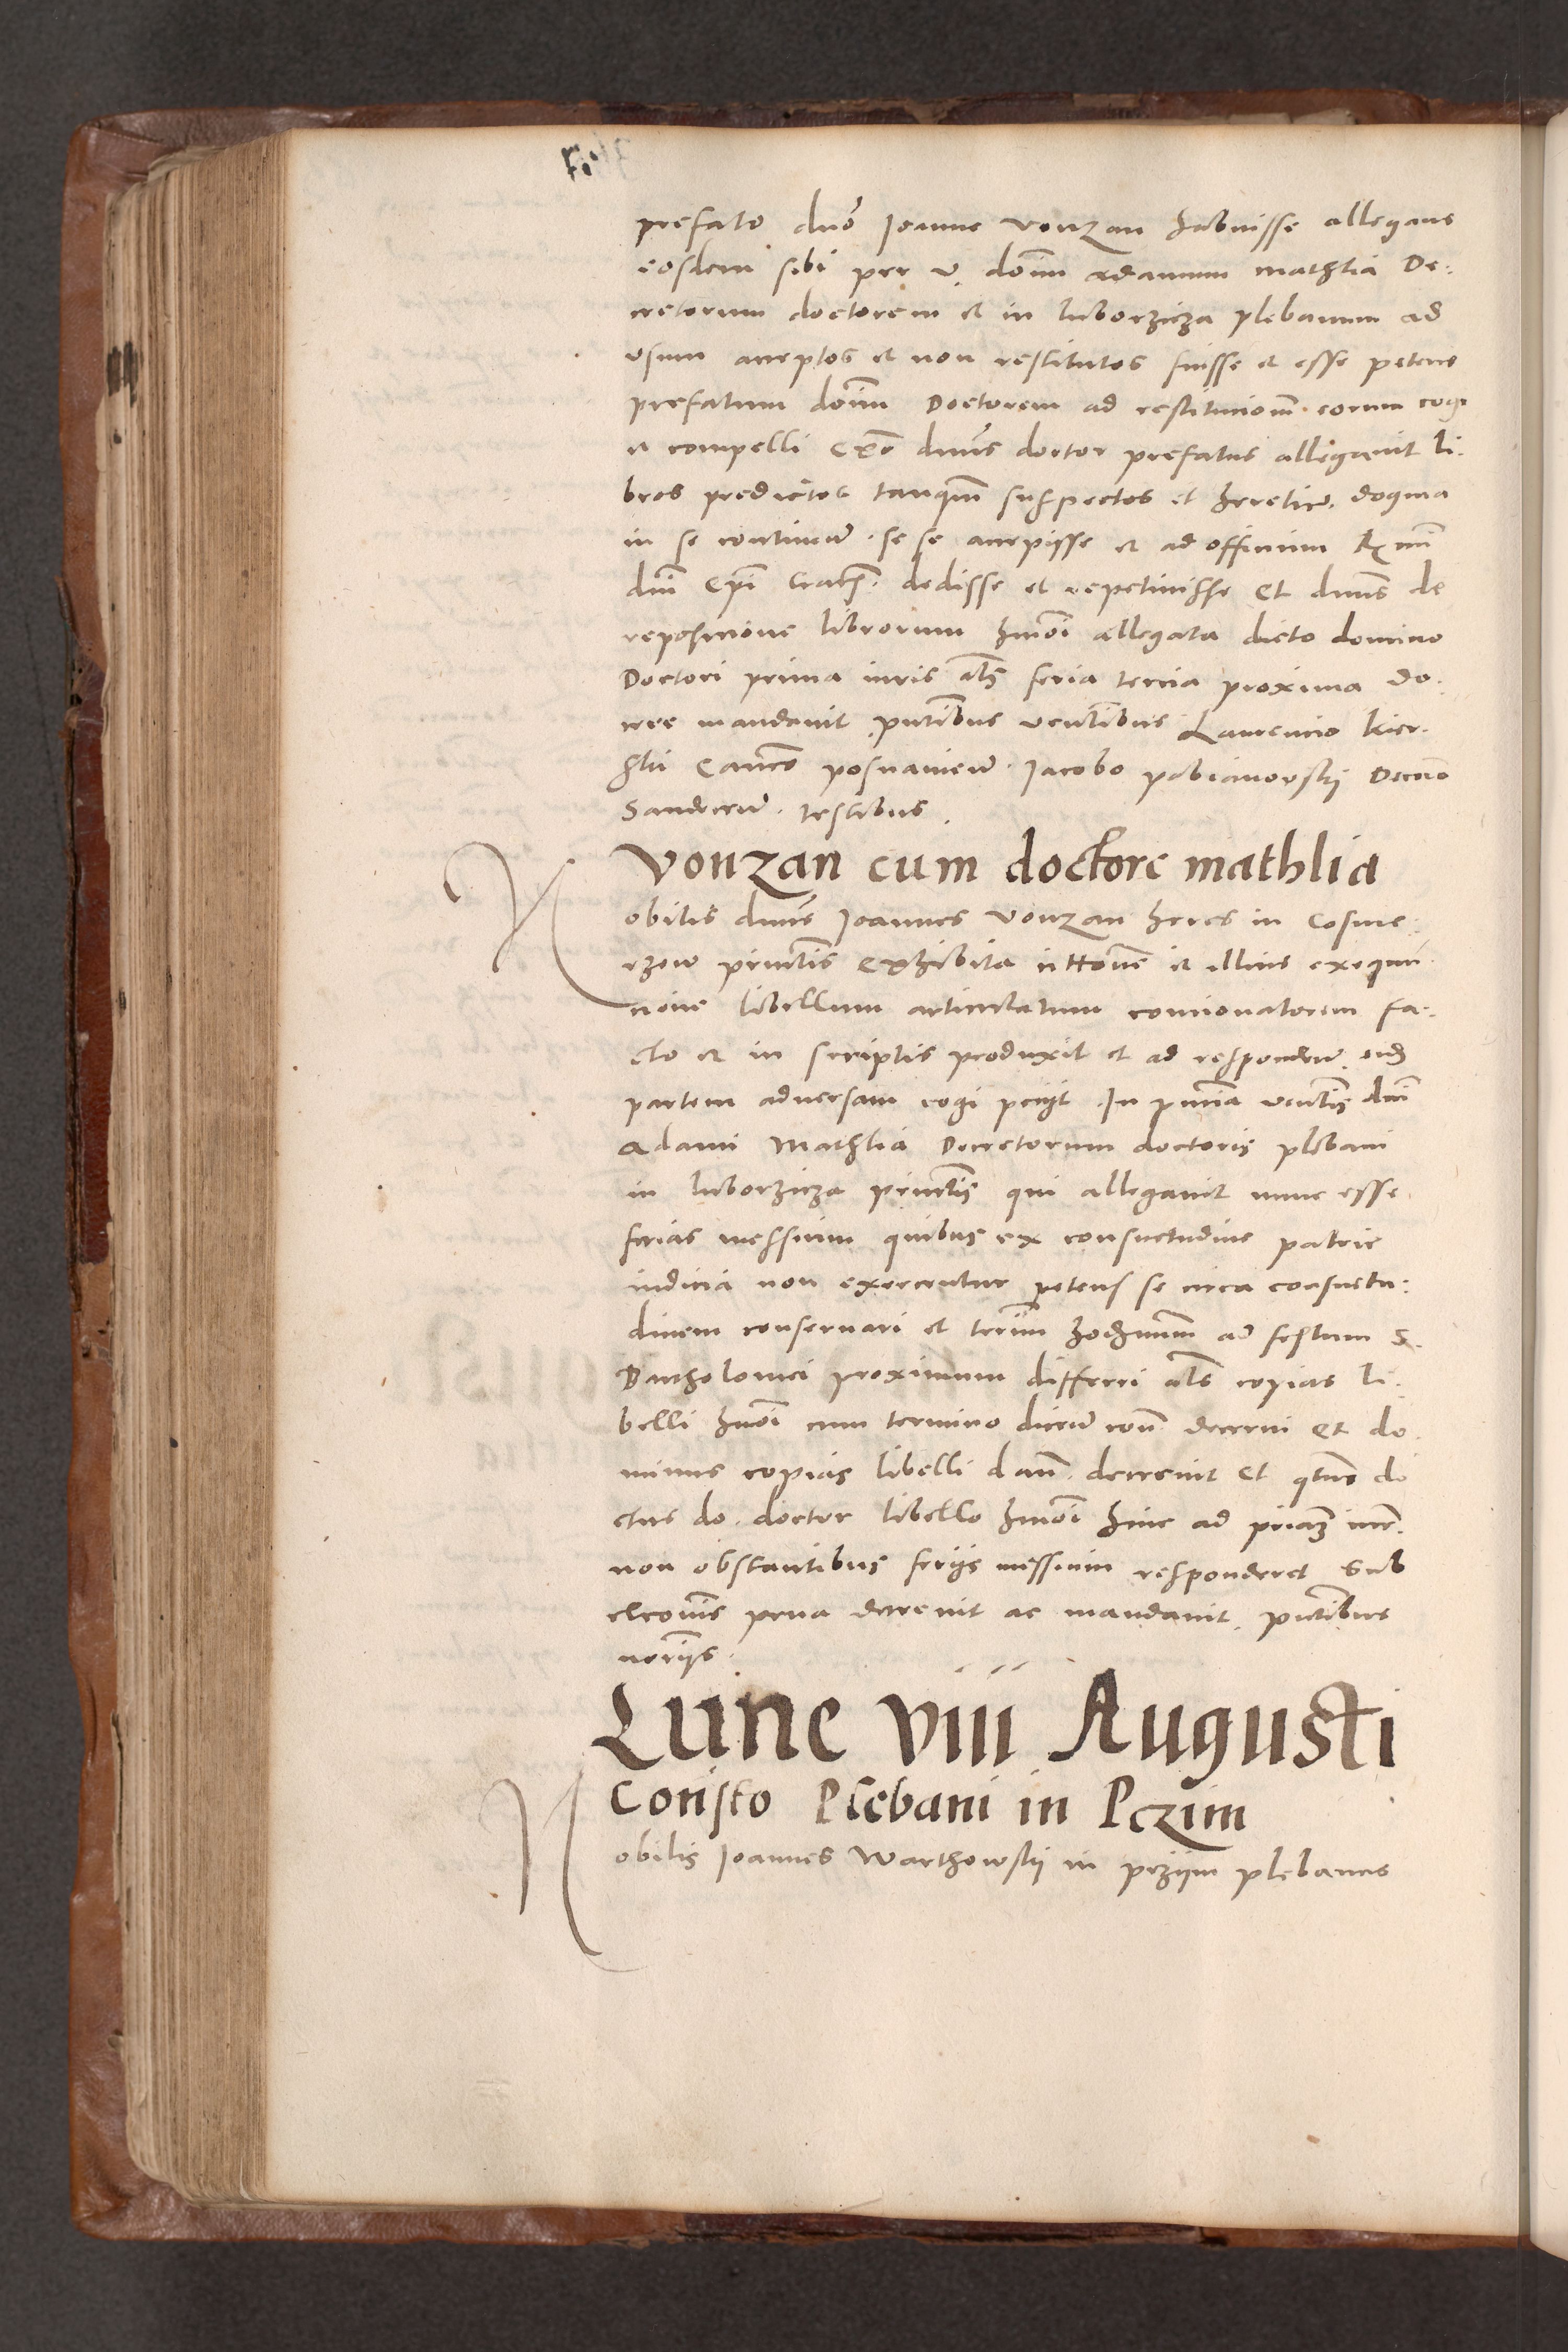 prefato dno Ioanne Vonzan habuisse allegans
eosdem sibi per v. donim Adamum Mathlia De-
cretorum doctorem et in luborzicza plebanum ad
usum acceptos et non restitutos fuisse et esse petens
prefatum donim Doctorem ad restitucionem eorum cogi
et compelli Ex dnus doctor prefatus allegavit li-
bros predictos tanquam suspectos et heretic. dogma
in se continen. se se accepisse et ad officium R mi
dni Epi Crac. dedisse et repetiuisse Et dnus de
reposicione librorum hmoi allegata dicto domino
Doctori prima iuris als feria tercia proxima do-
cere mandavit pntibus Laurencio Kier-
ski Canco posnanien. Iacobo pabianowskij Decano
Sandecen. testibus.
Vonzan cum doctore mathlia
Nobilis dnus Ioannes Vonzan heres in Cosme-
rzow principalis Exhibita et illius exequu-
cione libellum articulatum concionatorem fa-
cto et in scriptis produxit et ad respondend. eidem
partem adversam cogi peciit. In pntia dni
Adami Mathlia Decretorum doctoris plebani
in luborzicza principalis qui allegavit nunc esse
ferias messium quibus ex consuetudine patrie
iudicia non exercentur petens se circa consuetu-
dinem conservari et terim hodiernum ad festum S.
Bartholomei proximum differri als copias li-
belli hmoi cum termino dicen. con. decerni Et do-
minus copias libelli dan. decrevit Et qtnus di
ctus do. doctor libello hmoi hinc ad primam iur.
non obstantibus feriis messium responderet Sub
pena decrevit ac mandavit. pntibus
noriis.
Lune viii Augusti
Consto Plebani in Pczim
Nobilis Ioannes Warthowskij in pczijm plebanus